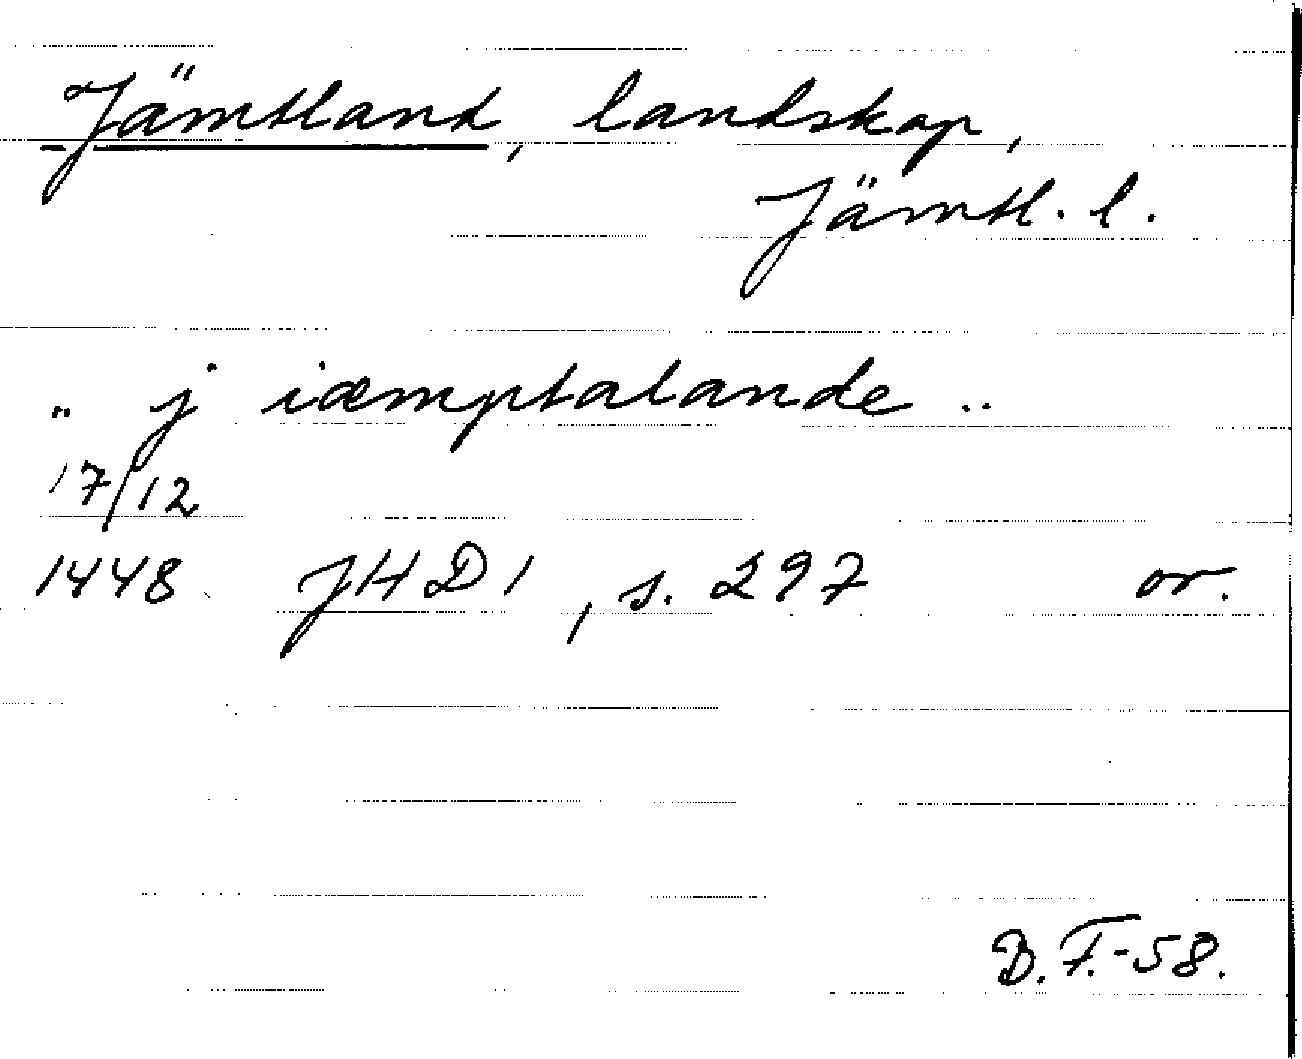 Jämtland, landskap,
Jämtl. l.
.. j iæmptalande ..
17/12
1448 JHD 1, s. 297 or.
B.F.-58.